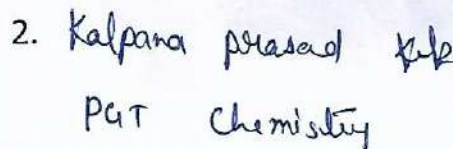 2. Kalpana prasad
PGT Chemistry